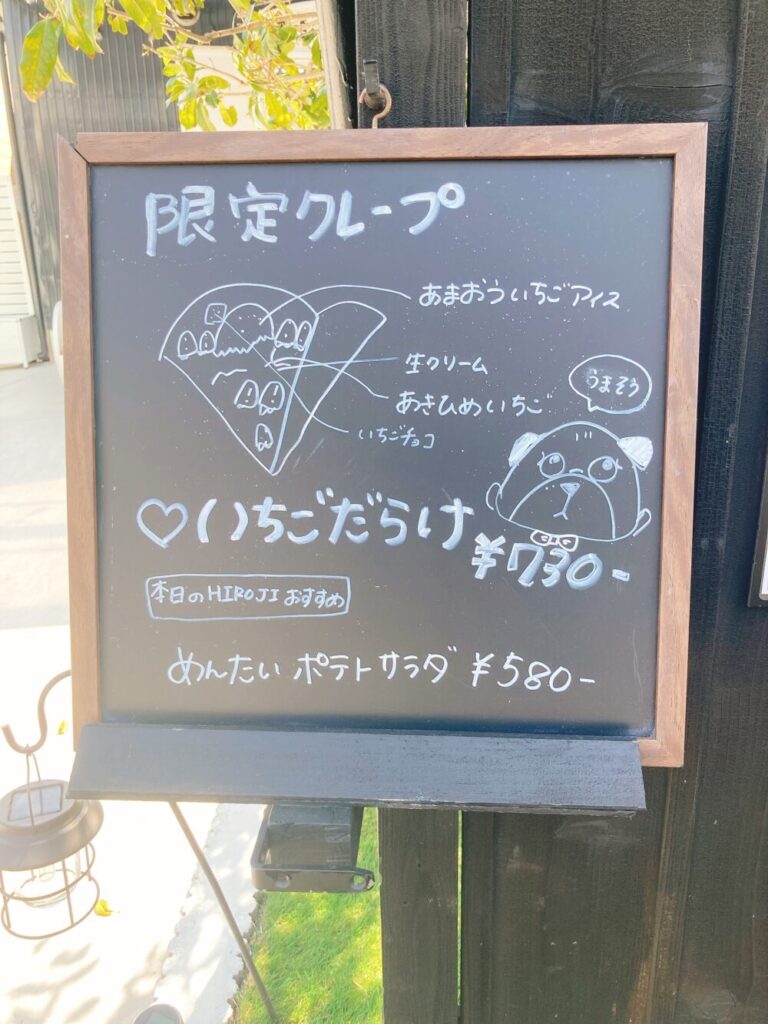 限定クレープ
あまおういちごアイス
生クリーム
あきひめいちご
いちごチョコ
うまそう
♡いちごだらけ
¥730-
本日のHIROJIおすすめ
めんたいポテトサラダ ¥580-